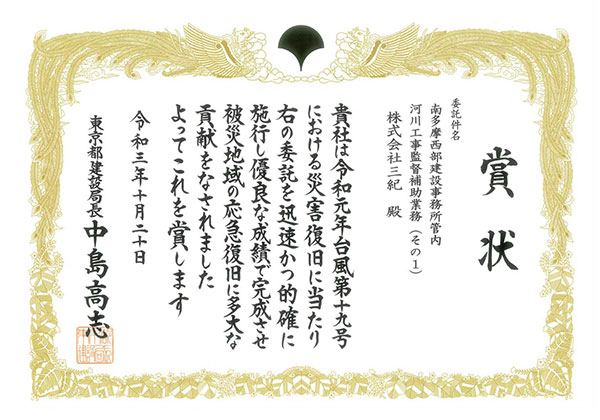 賞状
委託件名
南多摩西部建設事務所管内
河川工事監督補助業務(その1)
株式会社三紀 殿
貴社は令和元年台風第十九号
における災害復旧に当たり
右の委託を迅速かつ的確に
施行し優良な成績で完成させ
被災地域の応急復旧に多大な
貢献をなされました
よってこれを賞します
令和三年十月二十日
東京都建設局長 中島高志